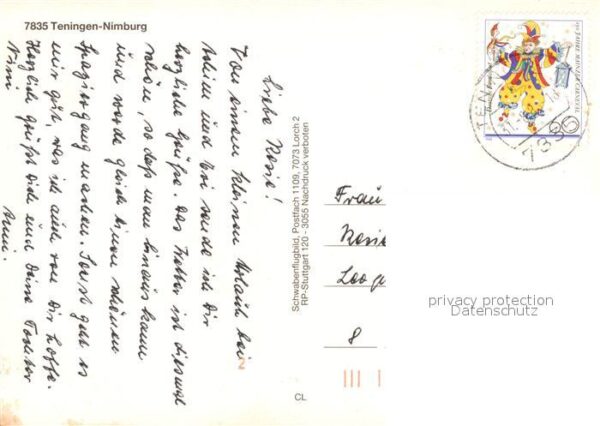 7835 Teningen-Nimburg
Liebe Rosie!
Von einem kleinen Urlaub bei
Achim und sende ich Dir
herzliche Grüße. Das Wetter ist diesmal
schön, so daß man hinaus kann
und werde gleich einen schönen
Spaziergang machen. Sonst geht es
mir gut, was ich auch von Dir hoffe.
Herzlich grüßt Dich und Deine Tochter
Anni.
Schwabenflugbild, Postfach 1109, 7073 Lorch 2
RP-Stuttgart 120 - 3055 Nachdruck verboten
CL
150 JAHRE MAINZER CARNEVAL
TEN
7835
Frau
Rosie
8
privacy protection
Datenschutz